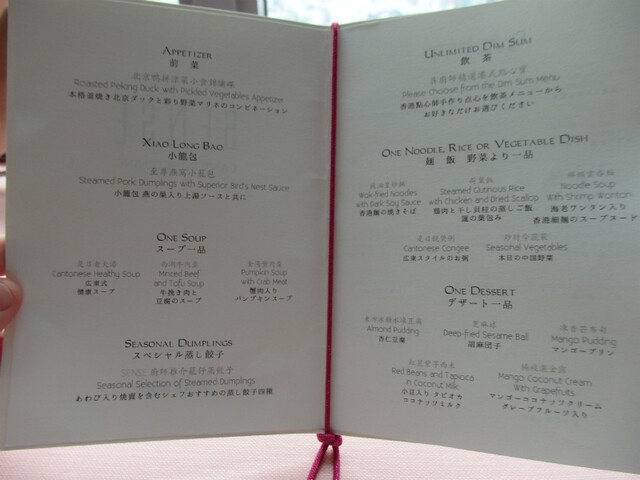 APPETIZER
前 菜
Roasted Peking Duck with Pickled Vegetables Appetizer
本格釜焼き北京ダックと彩り野菜マリネのコンビネーション
XIAO LONG BAO
小籠包
Steamed Pork Dumplings with Superior Bird's Nest Sauce
小籠包 燕の巣入り上湯ソースと共に
ONE SOUP
スープ一品
Cantonese Healthy Soup
広東式
健康スープ
Minced Beef
and Tofu Soup
牛挽き肉と
豆腐のスープ
Pumpkin Soup
with Crab Meat
蟹肉入り
パンプキンスープ
SEASONAL DUMPLINGS
スペシャル蒸し餃子
Seasonal Selection of Steamed Dumplings
あわび入り焼賣を含むシェフおすすめの蒸し餃子四種
UNLIMITED DIM SUM
飲 茶
Please Choose from the Dim Sum Menu
香港點心師手作り点心を飲茶メニューから
お好きなだけお選びください
ONE NOODLE, RICE OR VEGETABLE DISH
麺 飯 野菜より一品
Wok-fried Noodles
with Dark Soy Sauce
香港麺の焼きそば
Steamed Glutinous Rice
with Chicken and Dried Scallop
鶏肉と干し貝柱の蒸しご飯
蓮の葉包み
Noodle Soup
With Shrimp Wonton
海老ワンタン入り
香港細麺のスープヌードル
Cantonese Congee
広東スタイルのお粥
Seasonal Vegetables
本日の中国野菜
ONE DESSERT
デザート一品
Almond Pudding
杏仁豆腐
芝麻球
Deep-fried Sesame Ball
胡麻団子
Mango Pudding
マンゴープリン
Red Beans and Tapioca
in Coconut Milk
小豆入り タピオカ
ココナッツミルク
Mango Coconut Cream
With Grapefruits
マンゴーココナッツクリーム
グレープフルーツ入り